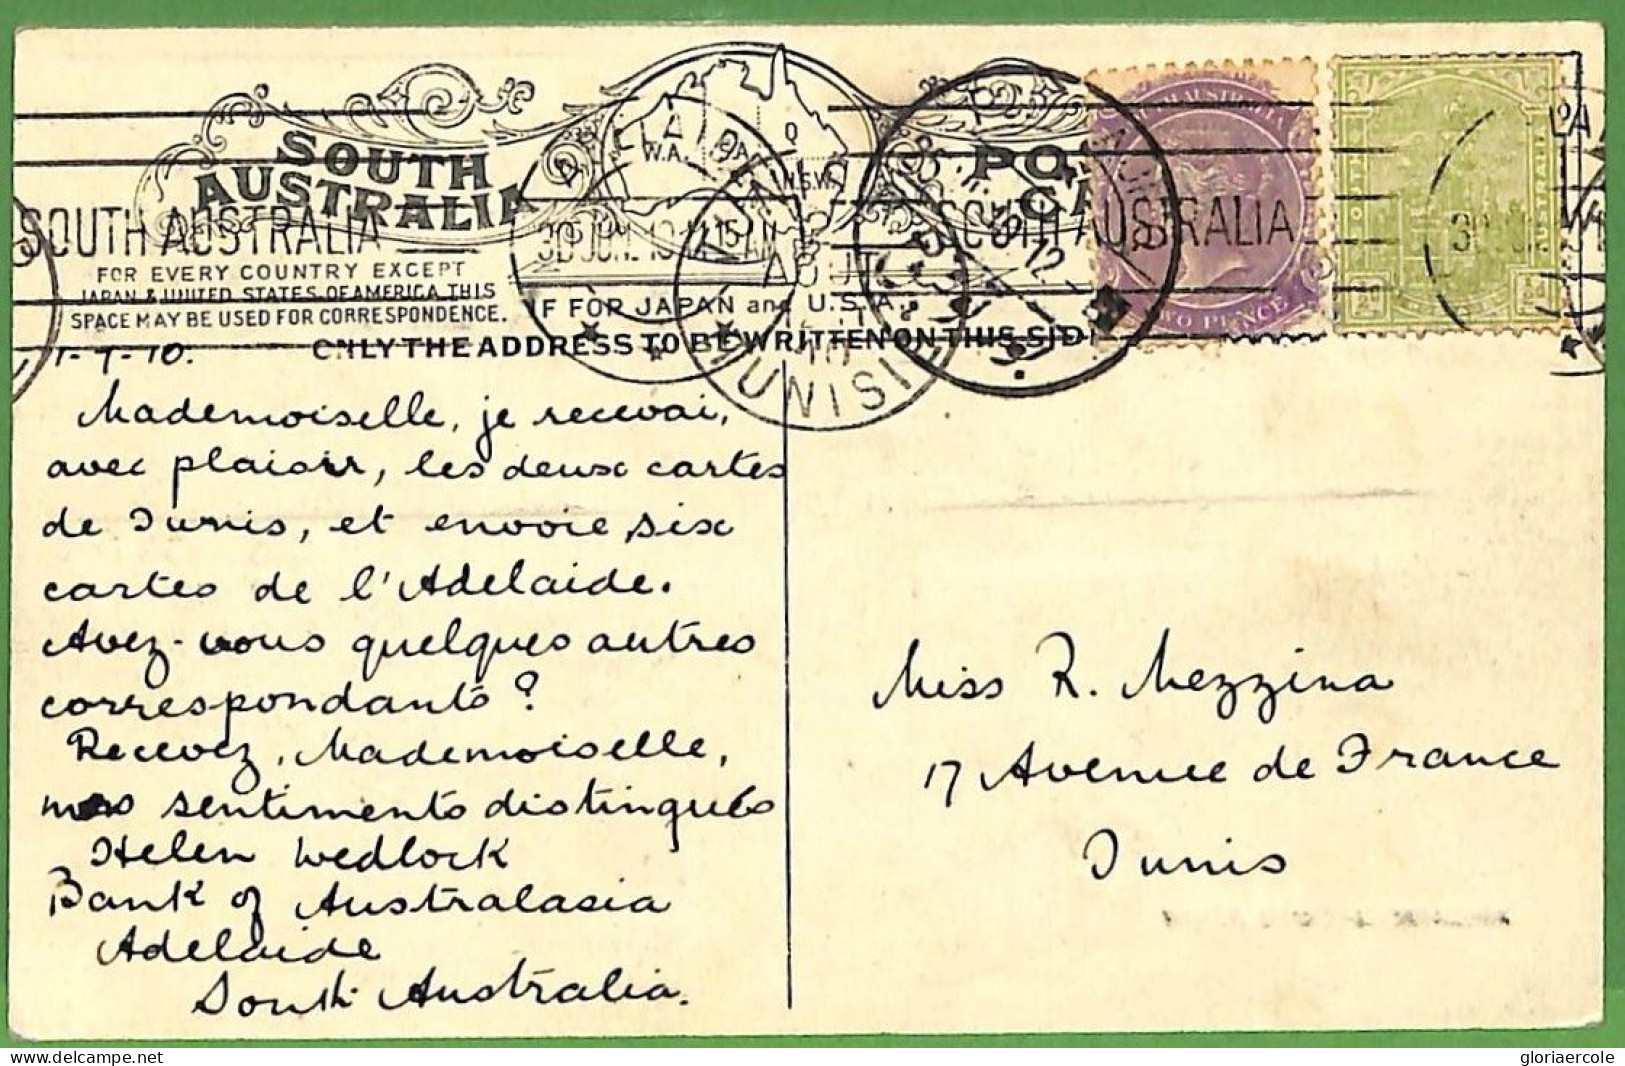 SOUTH AUSTRALIA
W.A.
Q
N.S.W.
SOUTH AUSTRALIA
30 JUN. 10
SOUTH AUSTRALIA
FOR EVERY COUNTRY EXCEPT
JAPAN & UNITED STATES OF AMERICA THIS
SPACE MAY BE USED FOR CORRESPONDENCE.
IF FOR JAPAN and U.S.A.
ONLY THE ADDRESS TO BE WRITTEN ON THIS SID
TWO PENCE
TUNISIE
1-7-10.
Mademoiselle, je recevai,
avec plaisir, les deux cartes
de Tunis, et envoie six
cartes de l'Adelaide.
Avez-vous quelques autres
correspondants?
Recevez, Mademoiselle,
mes sentiments distingués
Helen Wedlock
Bank of Australasia
Adelaide
South Australia.
Miss R. Mezzina
17 Avenue de France
Tunis
gloriaercole